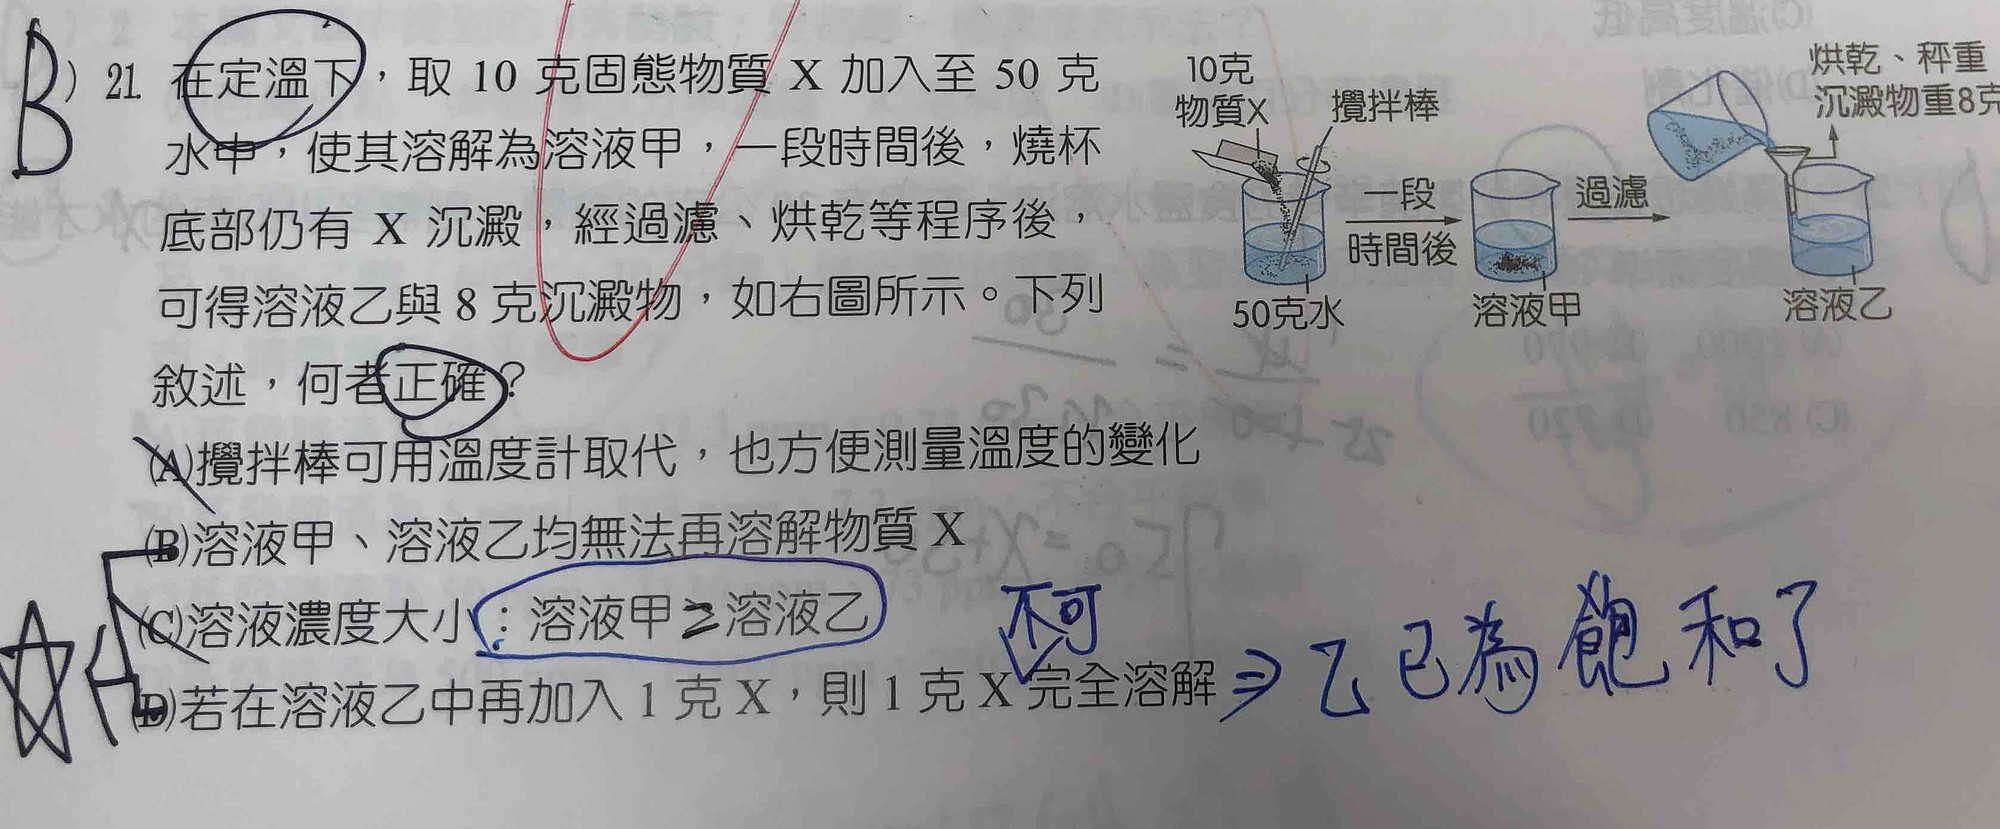 B) 21. 在定溫下，取 10 克固態物質 X 加入至 50 克
水中，使其溶解為溶液甲，一段時間後，燒杯
底部仍有 X 沉澱，經過濾、烘乾等程序後，
可得溶液乙與 8 克沉澱物，如右圖所示。下列
敘述，何者正確？
(A)攪拌棒可用溫度計取代，也方便測量溫度的變化
(B)溶液甲、溶液乙均無法再溶解物質 X
(C)溶液濃度大小：溶液甲＞溶液乙
(D)若在溶液乙中再加入 1 克 X，則 1 克 X 完全溶解
不可
⇒ 乙已為飽和了
10克
物質X
攪拌棒
50克水
一段
時間後
溶液甲
過濾
烘乾、秤重
沉澱物重8克
溶液乙